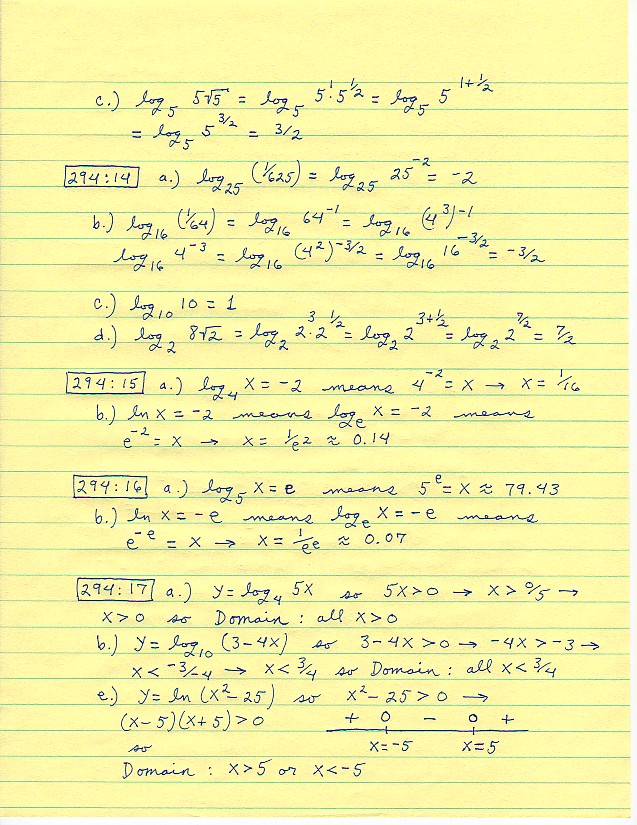 c.) log₅ 5√5 = log₅ 5¹·5^½ = log₅ 5^(1+½)
= log₅ 5^(3/2) = 3/2
294:14 a.) log₂₅ (1/625) = log₂₅ 25⁻² = -2
b.) log₁₆ (1/64) = log₁₆ 64⁻¹ = log₁₆ (4³)⁻¹
log₁₆ 4⁻³ = log₁₆ (4²)^(-3/2) = log₁₆ 16^(-3/2) = -3/2
c.) log₁₀ 10 = 1
d.) log₂ 8√2 = log₂ 2³·2^½ = log₂ 2^(3+½) = log₂ 2^(7/2) = 7/2
294:15 a.) log₄ X = -2 means 4⁻² = X → X = 1/16
b.) ln X = -2 means logₑ X = -2 means
e⁻² = X → X = 1/e² ≈ 0.14
294:16 a.) log₅ X = e means 5^e = X ≈ 79.43
b.) ln X = -e means logₑ X = -e means
e^(-e) = X → X = 1/e^e ≈ 0.07
294:17 a.) Y = log₄ 5X so 5X > 0 → X > 0/5 →
X > 0 so Domain : all X > 0
b.) Y = log₁₀ (3-4X) so 3-4X > 0 → -4X > -3 →
X < -3/-4 → X < 3/4 so Domain : all X < 3/4
e.) Y = ln (X²-25) so X²-25 > 0 →
(X-5)(X+5) > 0 + 0 - 0 +
so X=-5 X=5
Domain : X > 5 or X < -5